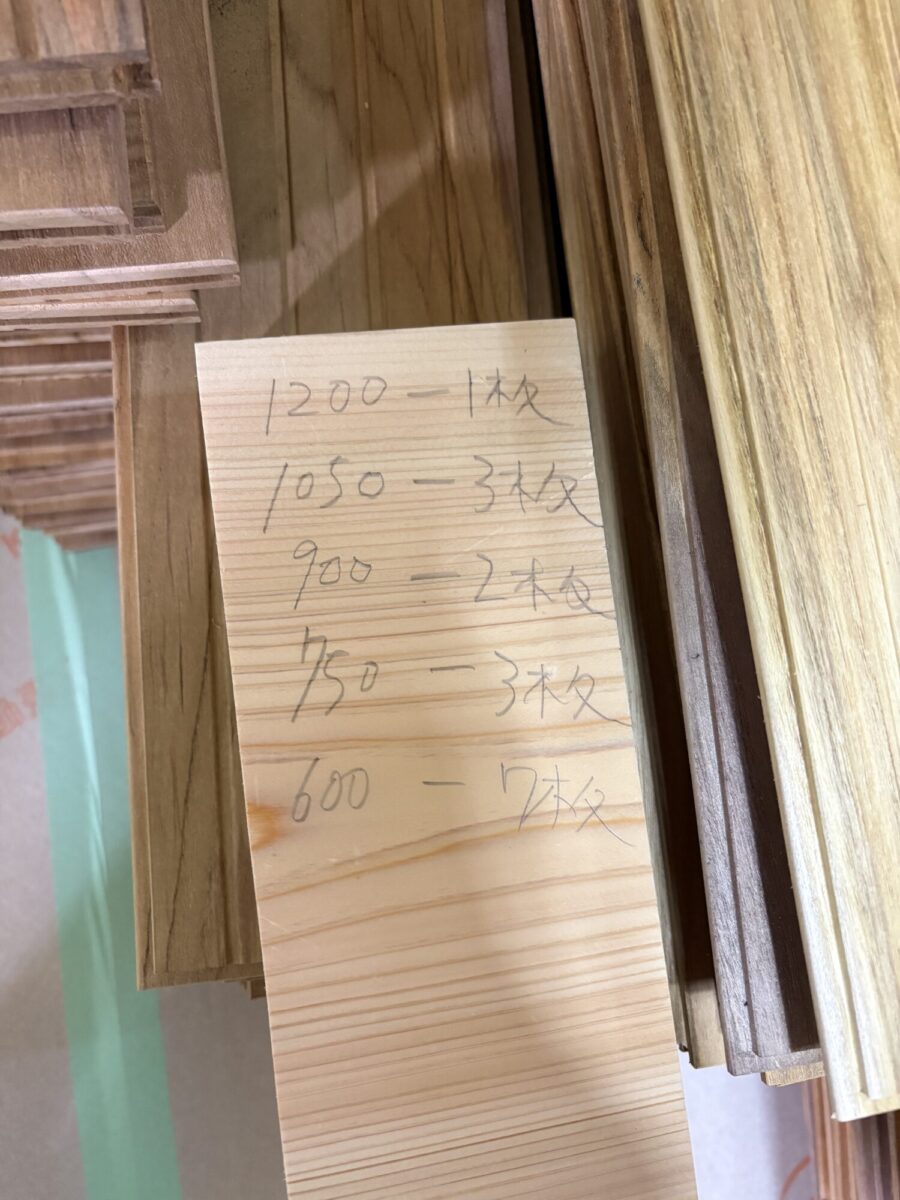 1200 － 1枚
1050 － 3枚
900 － 2枚
750 － 3枚
600 － 7枚